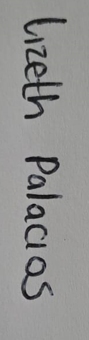 Lizeth Palacios